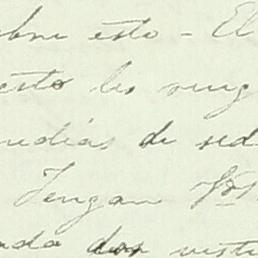 obre esto - El
esto les rueg
medias de sed
Tengan Vds
nda dos vesti